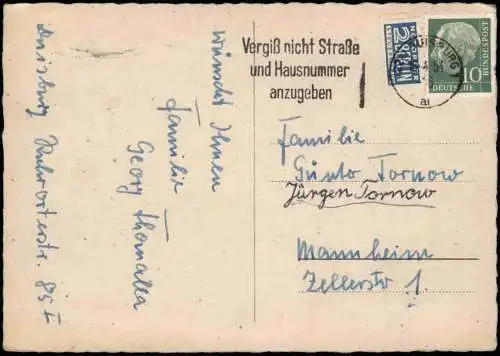 Wünscht Ihnen
Familie
Georg Thomalla
Duisburg Ruhrorterstr. 85 I
Vergiß nicht Straße
und Hausnummer
anzugeben
NOTOPFER
2 BERLIN
STEUERMARKE
DUISBURG 1
al
DEUTSCHE
BUNDESPOST
10
Familie
Günto Tornow
Jürgen Tornow
Mannheim
Zellerstr 1.